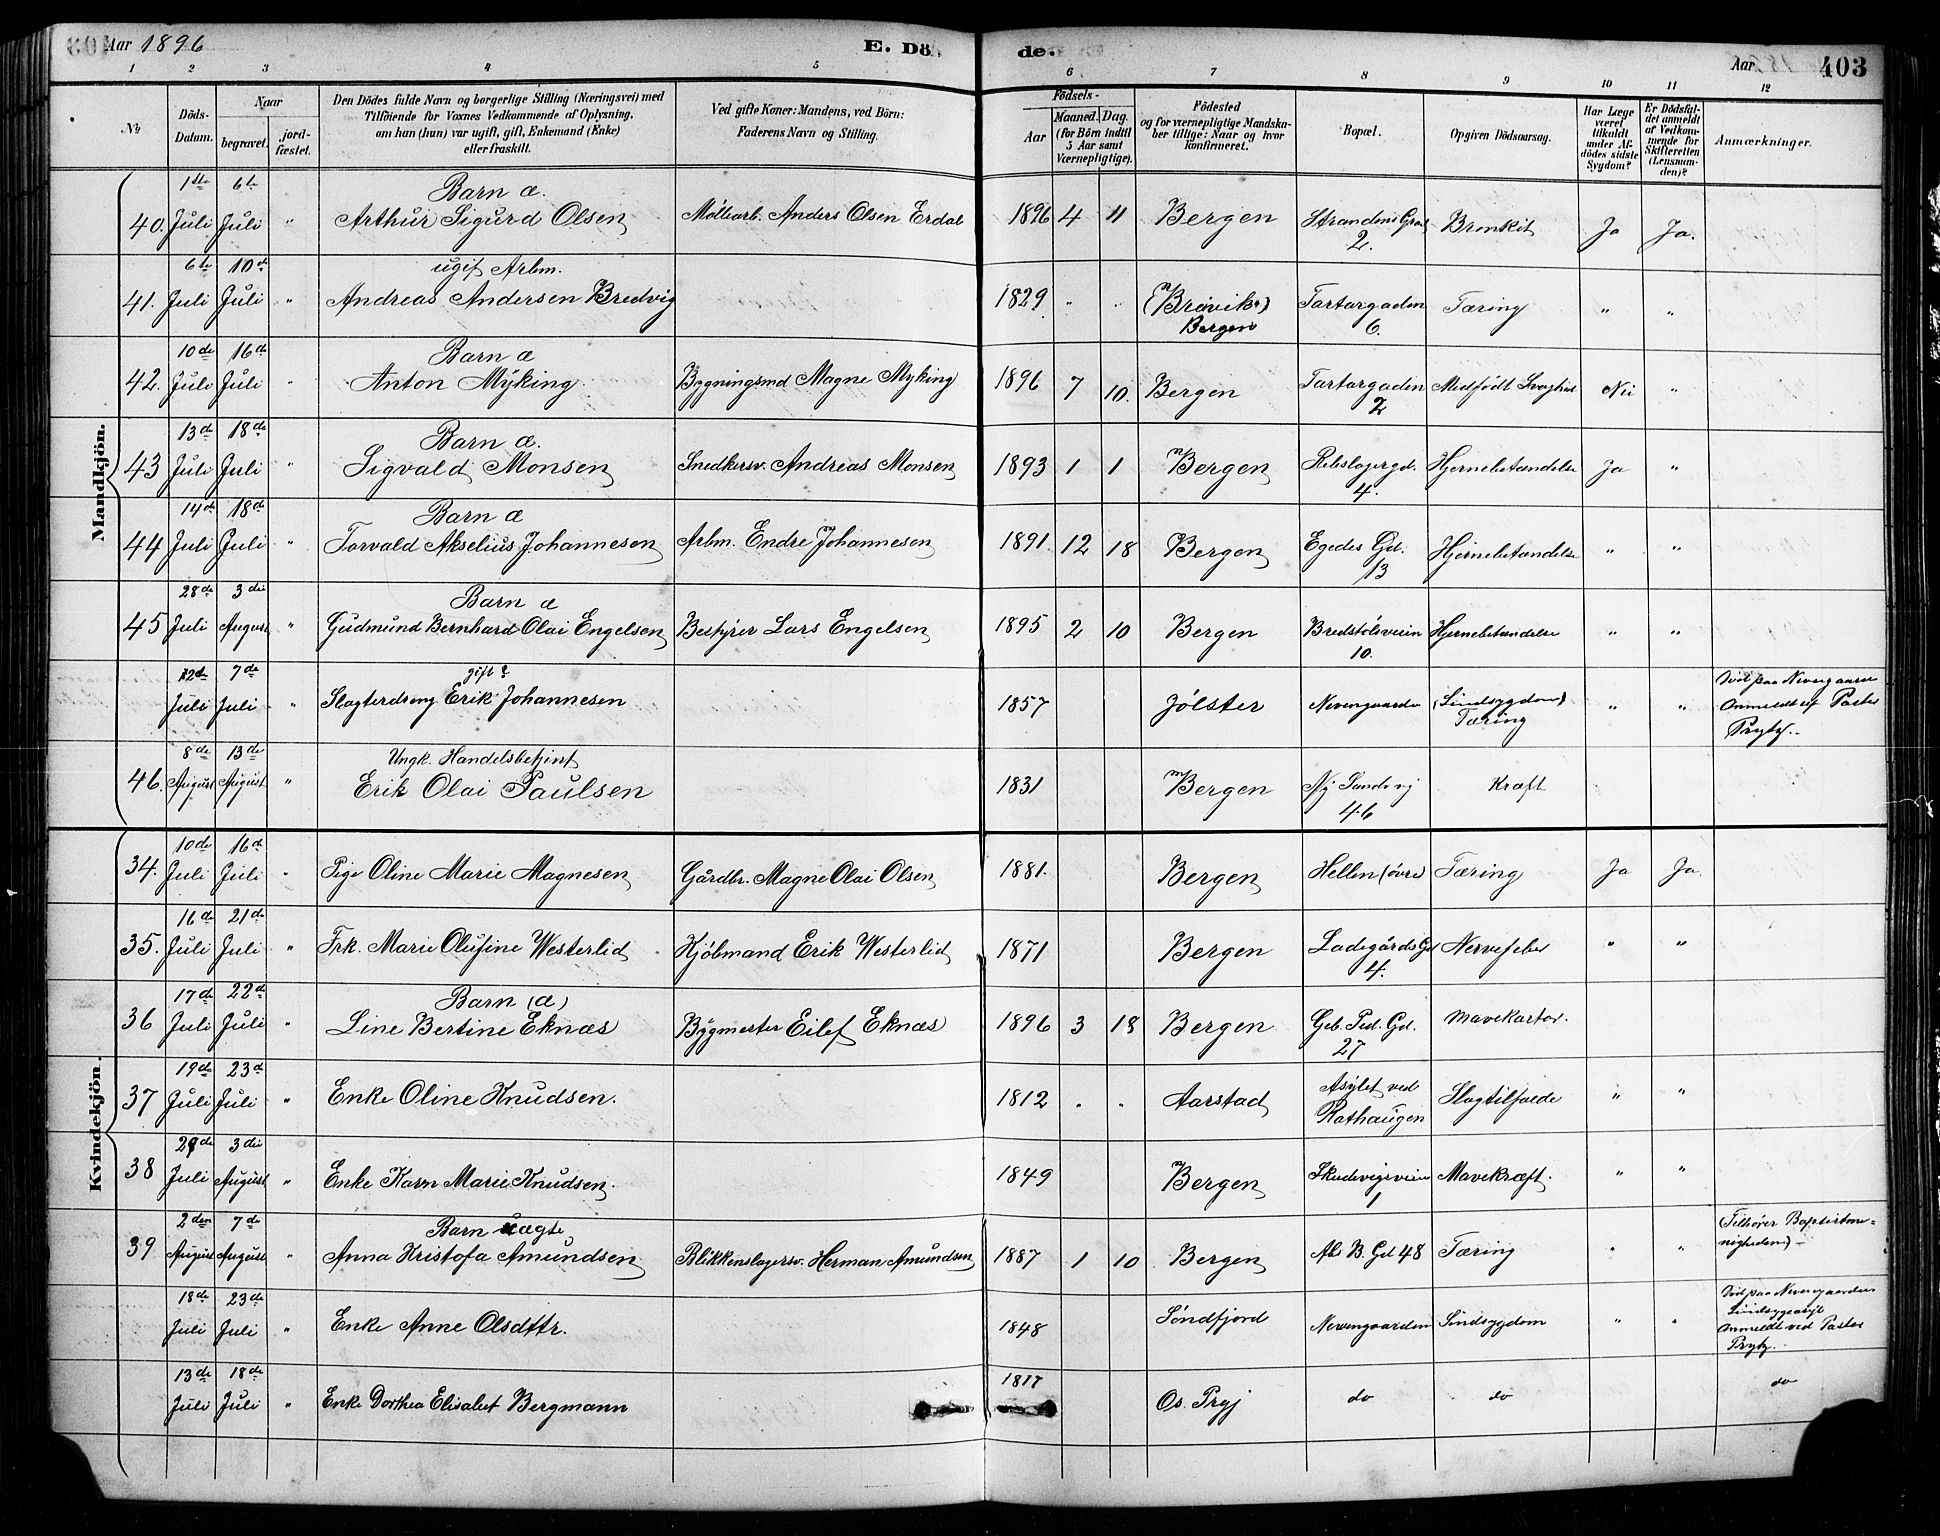 Aar 1896 E. Dö de. Aar 403
1 2 3 4 5 6 7 8 9 10 11 12
No
Döds-Datum.
Naar begravet. jordfæstet.
Den Dödes fulde Navn og borgerlige Stilling (Næringsvei) med Tilföiende for Voxnes Vedkommende af Oplysning, om han (hun) var ugift, gift, Enkemand (Enke) eller fraskilt.
Ved gifte Koner: Mandens, ved Börn: Faderens Navn og Stilling.
Födsels- Aar Maaned. Dag. (for Börn indtil 5 Aar samt Værnepligtige).
Födested og for værnepligtige Mandskaber tillige: Naar og hvor konfirmeret.
Bopæl.
Opgiven Dödsaarsag.
Har Læge været tilkaldt under Afdödes sidste Sygdom?
Er Dödsfaldet anmeldt af Vedkommende for Skifteretten (Lensmanden)?
Anmærkninger.
Mandkjön.
40. 1ste Juli 6te Juli " Barn æ. Arthur Sigurd Olsen Møllearb. Anders Olsen Erdal 1896 4 11 Bergen Strandens Grd 2. Bronkit Ja Ja.
41. 6te Juli 10de Juli " ugift Arbm. Andreas Andersen Bredvig 1829 " " (Brøvik) Bergen Tartargaden 6. Tæring " "
42. 10de Juli 16de Juli " Barn æ Anton Myking Bygningsmd Magne Myking 1896 7 10. Bergen Tartargaden 2 Medfødt Svaghed Nei "
43 13de Juli 18de Juli " Barn æ. Sigvald Monsen Snedkersv. Andreas Monsen 1893 1 1 Bergen Rebslagergd. 4. Hjernebetændelse Ja "
44 14de Juli 18de Juli " Barn æ Torvald Akselius Johannesen Arbm. Endre Johannesen 1891. 12 18 Bergen Egedes Gd. 13 Hjernebetændelse " "
45 28de Juli 3die August " Barn æ Gudmund Bernhard Olai Engelsen Bestyrer Lars Engelsen 1895 2 10 Bergen Bredstølsveien 10. Hjernebetændelse " "
12de Juli 7de Juli " gift? Slagterdreng Erik Johannesen 1857 Jølster Nevengaarden (Sindsygdom) Tæring " " Død paa Nevengaarden Anmeldt af Pastor Prytz.
46. 8de August 13de August " Ungk. Handelsbetjent Erik Olai Paulsen 1831 Bergen Ny Sandvig 46 Kræft
Kvindekjön.
34. 10de Juli 16de Juli " Pige Oline Marie Magnesen Gårdbr. Magne Olai Olsen 1881. Bergen Hellen (övre) Tæring Ja Ja.
35. 16de Juli 21de Juli " Frk. Marie Olufine Westerlid Kjöbmand Erik Westerlid 1871 Bergen Ladegårds Gd 4. Nervefeber " "
36 17de Juli 22de Juli " Barn (æ) Line Bertine Eknæs Bygmester Eilef Eknæs 1896 3 18 Bergen Geb. Ped. Gd. 27 Mavekatar.
37 19de Juli 23de Juli " Enke Oline Knudsen. 1812 " " Aarstad Asylet ved Rothaugen Slagtilfælde " "
38 29de Juli 3die August " Enke Karn Marie Knudsen. 1849 Bergen Skudevigsveien 1 Mavekræft. " "
39 2den August 7de August " Barn uægte Anna Kristofa Amundsen Blikkenslagersv. Herman Amundsen 1887 1 10 Bergen Abs B. Gd 48 Tæring " " (Tilhører Baptistmenigheden)
18de Juli 23de Juli " Enke Anne Olsdttr. 1848 Söndfjord Nevengaarden Sindsygdom " " Død paa Nevengaardens Sindsygeasyl Anmeldt ved Pastor Prytz.
13de Juli 18de Juli " Enke Dorthea Elisabet Bergmann 1817 Os. Prgj do do do